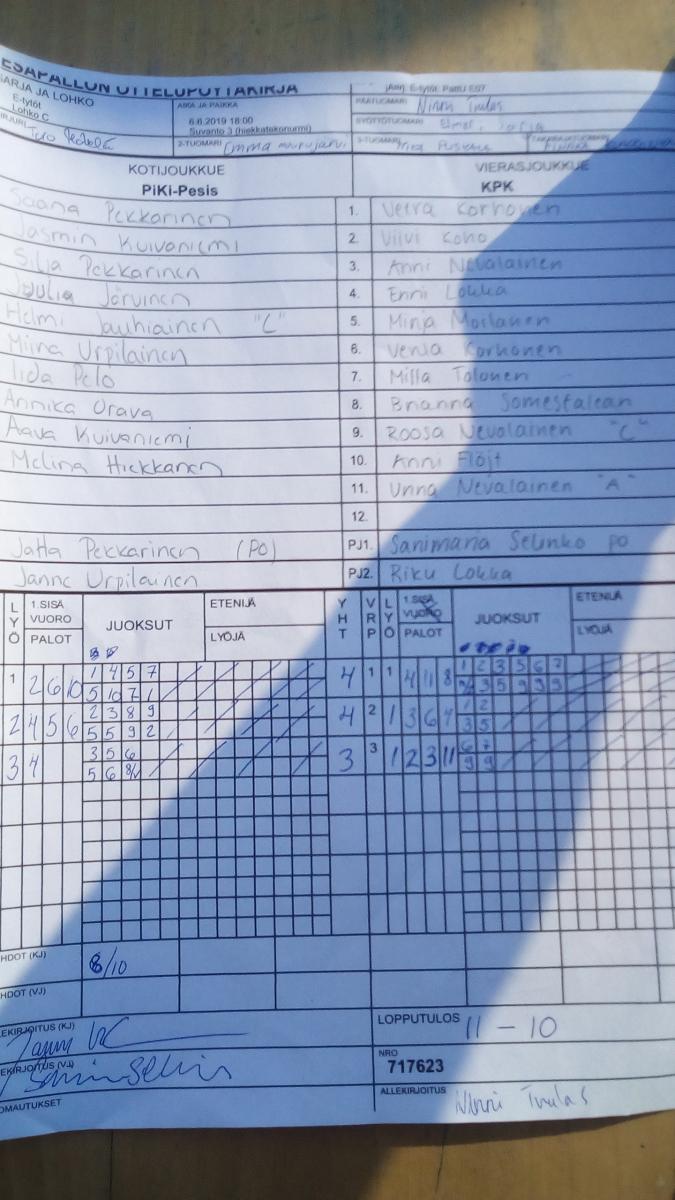 ESAPALLON OTTELUPÖYTÄKIRJA
ARJA JA LOHKO
E-tytöt
Lohko C
AIKA JA PAIKKA
6.6.2019 18:00
Suvanto 3 (hiekkatekonurmi)
PÄÄTUOMARI Ninni
SYÖTTÖTUOMARI
2-TUOMARI Emma
3-TUOMARI
KOTIJOUKKUE
PiKi-Pesis
VIERASJOUKKUE
KPK
Saana Pekkarinen 1. Veera Korhonen
Jasmin Kuivaniemi 2. Viivi Koho
Silja Pekkarinen 3. Anni Nevalainen
Juulia Järvinen 4. Enni Lokka
Helmi Jauhiainen "C" 5. Minja Moilanen
Miina Urpilainen 6. Venla Korhonen
Iida Pelo 7. Milla Tolonen
Annika Orava 8. Brianna Somestalean
Aava Kuivaniemi 9. Roosa Nevalainen "C"
Melina Hiekkanen 10. Anni Flöjt
11. Unna Nevalainen "A"
12.
Jatta Pekkarinen (PO) PJ1. Sanimaria Selinko PO
Janne Urpilainen PJ2. Riku Lokka
LYÖ 1.SISÄ VUORO PALOT JUOKSUT ETENIJÄ LYÖJÄ YHT VRP LYÖ 1.SISÄ VUORO PALOT JUOKSUT ETENIJÄ LYÖJÄ
1 2 6 10 1 4 5 7 4 1 1 4 11 8 1 2 3 5 6 7
5 10 7 1 3 5 9 9 9
2 4 5 6 2 3 8 9 4 2 1 3 6 7 1 2
5 5 9 2 3 5
3 4 3 5 6 3 3 1 2 3 11 6 7
5 6 9 9
HDOT (KJ) 8/10
HDOT (VJ)
LEKIRJOITUS (KJ)
EKIRJOITUS (VJ)
OMAUTUKSET
LOPPUTULOS 11 - 10
NRO
717623
ALLEKIRJOITUS Ninni